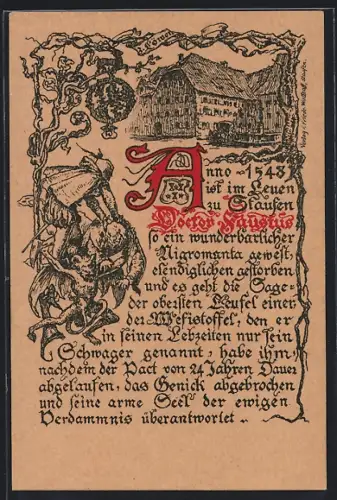 z. Löwen
Anno 1543
ist im Leuen
zu Staufen
Doctor Faustus
so ein wunderbarlicher
Nigromanta gewest,
elendiglichen gestorben
und es geht die Sage
der obersten Teufel einer
der Mefistoffel, den er
in seinen Lebzeiten nur sein
Schwager genannt, habe ihm,
nachdem der Pact von 24 Jahren Dauer
abgelaufen, das Genick abgebrochen
und seine arme Seel der ewigen
Verdammnis überantwortet ..